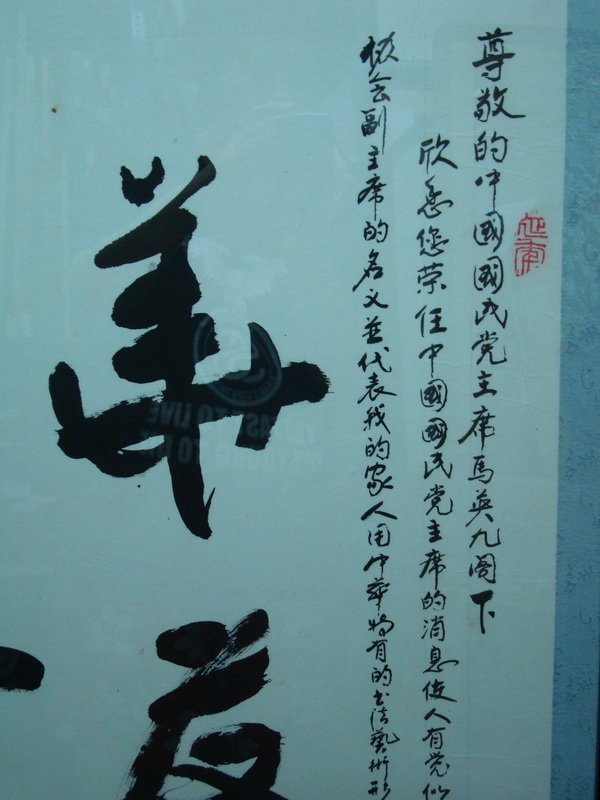 尊敬的中國國民党主席馬英九阁下
欣悉您荣任中國國民党主席的消息使人有觉似
会副主席的名义並代表我的家人用中華特有的书法藝術形
華